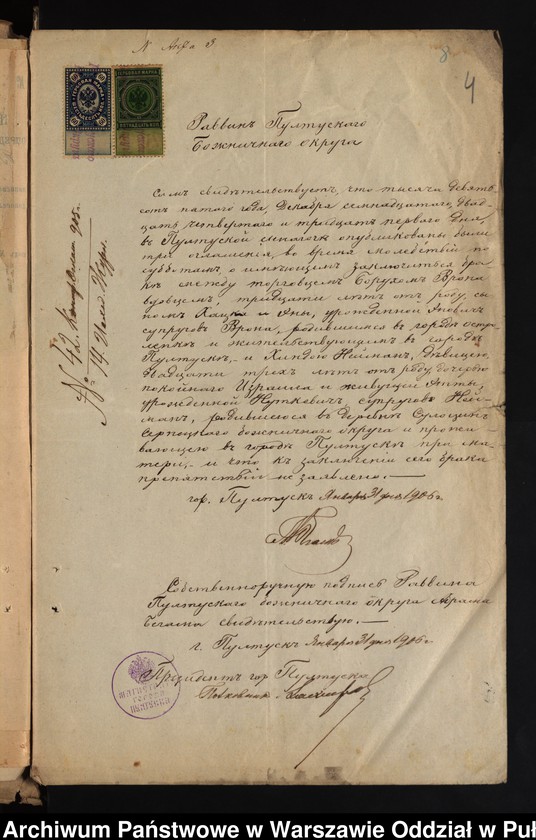 N Акта 3
8
4
Раввинъ Пултускаго
Божничнаго округа
Симъ свидѣтельствуетъ, что тысяча девять
сотъ пятаго года, Декабря семнадцатаго, двад-
цать четвертаго и тридцать перваго дня,
въ Пултуской синагогѣ опубликованы были
три оглашенія, во время молебствій по
субботамъ, о имѣющемъ заключиться бра-
кѣ между торговцемъ Борухомъ Врона
вдовцемъ, тридцати лѣтъ отъ роду, сы-
номъ и Аны, урожденной
супруговъ Врона, родившимся въ городѣ Остро-
ленкѣ и жительствующимъ въ городѣ
Пултускѣ, и Хиндою Нейманъ, дѣвицею,
двадцати трехъ лѣтъ отъ роду, дочерью
покойнаго Израиля и живущей
урожденной Нуткевичъ, супруговъ Ней-
манъ, родившеюся въ деревнѣ
Серпецкого божничнаго округа и прожи-
вающею въ городѣ Пултускѣ при ма-
тери, и что къ заключенію сего брака
препятствій не заявлено.
гор. Пултускъ Января 31 дня 1906 г.
Собственноручную подпись Раввина
Пултускаго божничнаго округа Абрама
свидѣтельствую.
г. Пултускъ Января 31 дня 1906 г.
Президентъ гор. Пултуска
905.
№ 14.
Archiwum Państwowe w Warszawie Oddział w Puł